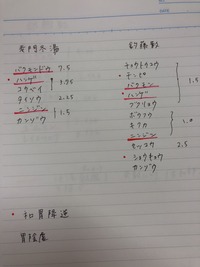 麦門冬湯
バクモンドウ 7.5
・ハンゲ
コウベイ 3.75
タイソウ 2.25
ニンジン
カンゾウ 1.5
釣藤散
チョウトウコウ
・チンピ
バクモン
・ハンゲ
ブクリョウ
1.5
ボウフウ
キクカ
ニンジン
1.0
セッコウ 2.5
・ショウキョウ
カンゾウ
・和胃降逆
胃陰虚